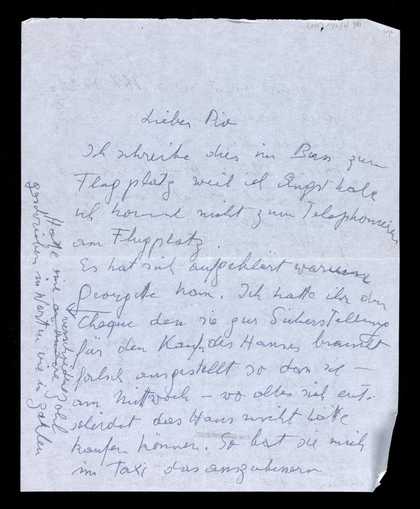 Lieber Pio
Ich schreibe dies im Bus zum
Flugplatz weil ich Angst habe
ich komme nicht zum Telephonieren
am Flugplatz.
Es hat sich aufgeklärt warum
Georgette kam. Ich hatte ihr den
Cheque den sie zur Sicherstellung
für den Kauf des Hauses braucht
falsch ausgestellt so dass sie –
am Mittwoch – wo alles sich ent-
scheidet das Haus nicht hätte
kaufen können. So bat sie mich
im Taxi das auszubessern
Hatte nie
Zahl
geschrieben in Worten wie in Zahlen